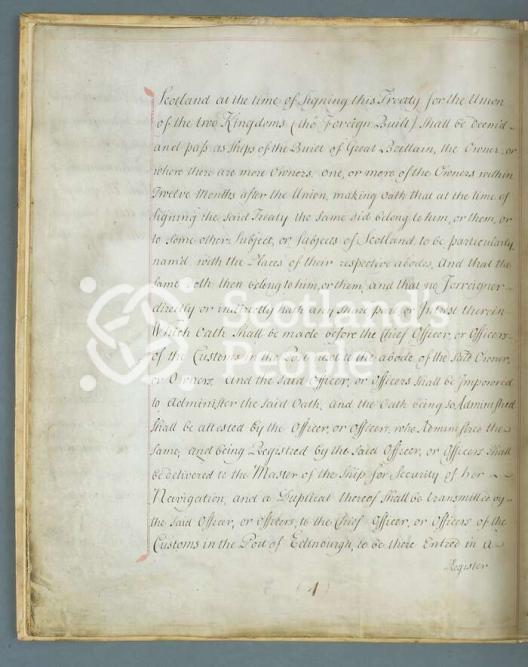 Scotland at the time of Signing this Treaty for the Union
of the two Kingdoms (tho' Foreign Built) Shall be Deem'd
and pass as Ships of the Built of Great Brittain, the Owner, or
where there are more Owners, one, or more of the Owners within
Twelve Months after the Union, making Oath that at the time of
Signing the said Treaty the same did belong to him, or them, or
to some other Subject, or Subjects of Scotland to be particularly
nam'd with the Places of their respective abodes, And that the
same doth then belong to him, or them, and that no Forreigner
directly or indirectly hath any share part or Intrest therein
Which Oath Shall be made before the Chief Officer, or Officers
of the Customs in the Port next to the abode of the said Owner,
or Owners, And the said Officer, or Officers Shall be Impowered
to Administer the said Oath, and the Oath being so Administred
Shall be attested by the Officer, or Officers, who Administred the
same, and being Registred by the said Officer, or Officers Shall
be delivered to the Master of the Ship for Security of her
Navigation, and a Duplicat thereof Shall be transmitted by
the said Officer, or Officers, to the Chief Officer, or Officers of the
Customs in the Port of Edinburgh, to be there Entred in a
Register
Scotland's
People